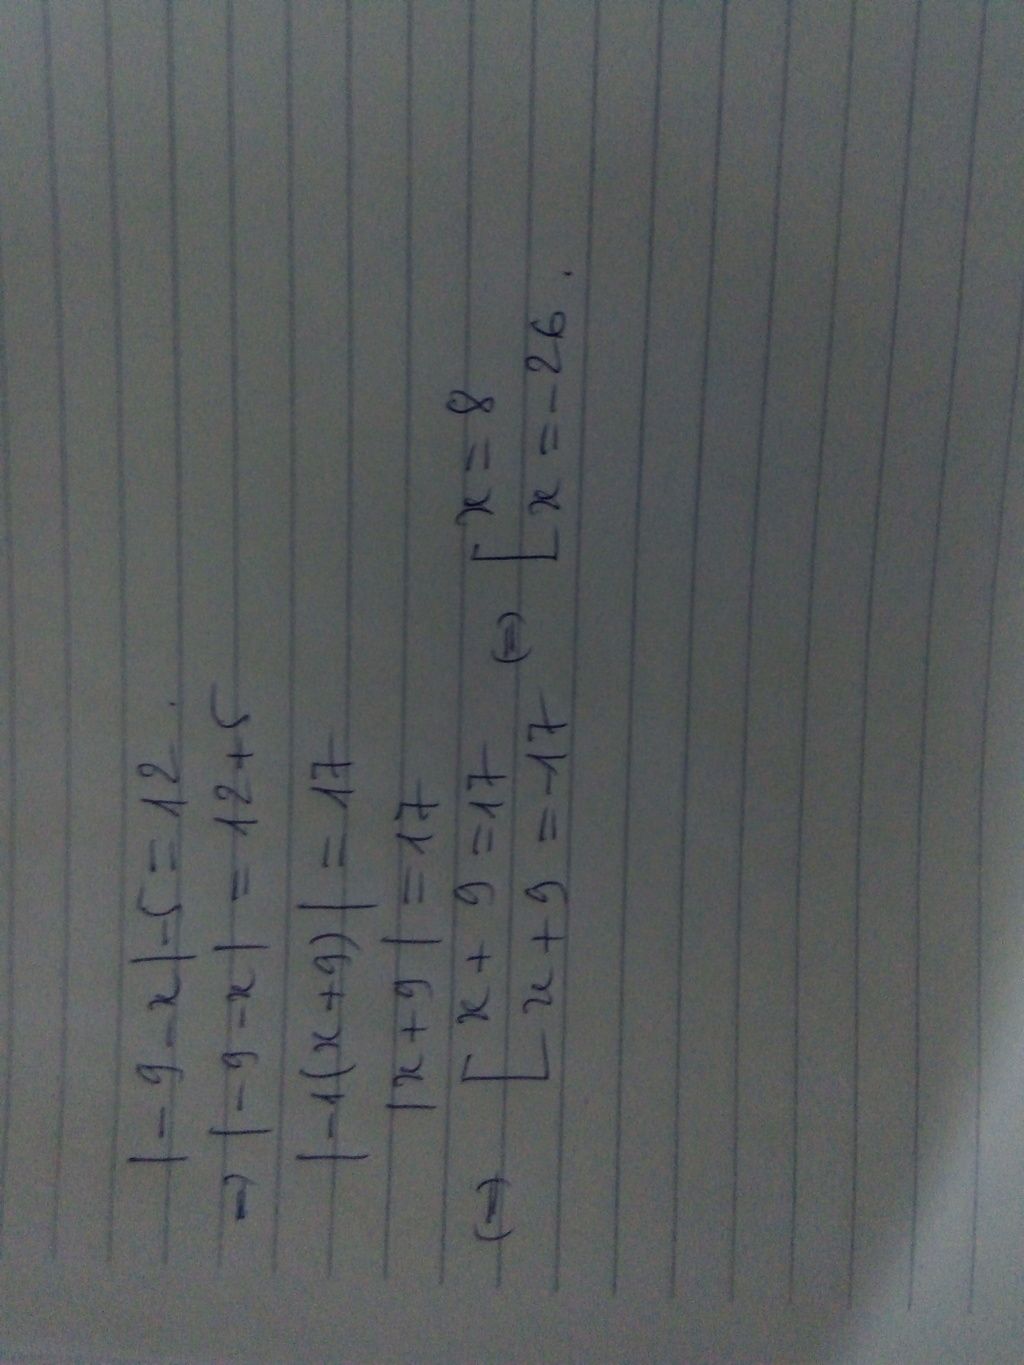 |-9-x|-5=12.
=> |-9-x| = 12+5
|-1(x+9)| = 17
|x+9| = 17
(=) [ x+9=17 (=) [ x=8
[ x+9=-17 [ x=-26.